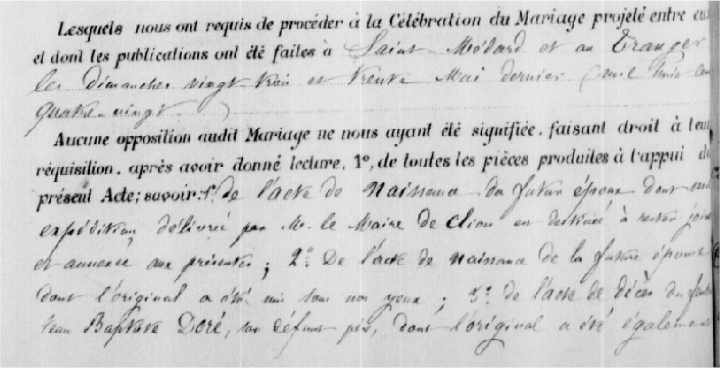 Lesquels nous ont requis de procéder à la Célébration du Mariage projeté entre eux
et dont les publications ont été faites à Saint-Médard et au Tranger
les dimanches vingt-trois et trente Mai dernier (mil huit cent
quatre-vingt.)
Aucune opposition audit Mariage ne nous ayant été signifiée, faisant droit à leur
réquisition, après avoir donné lecture, 1º, de toutes les pièces produites à l'appui du
présent Acte; savoir: 1º de l'acte de Naissance du futur époux dont une
expédition, délivrée par Mr. le Maire de Clion est destinée à rester jointe
et annexée aux présentes; 2º De l'acte de Naissance de la future épouse
dont l'original a été mis sous nos yeux; 3º de l'acte de décès du
Jean Baptiste Doré, son défunt père, dont l'original a été également